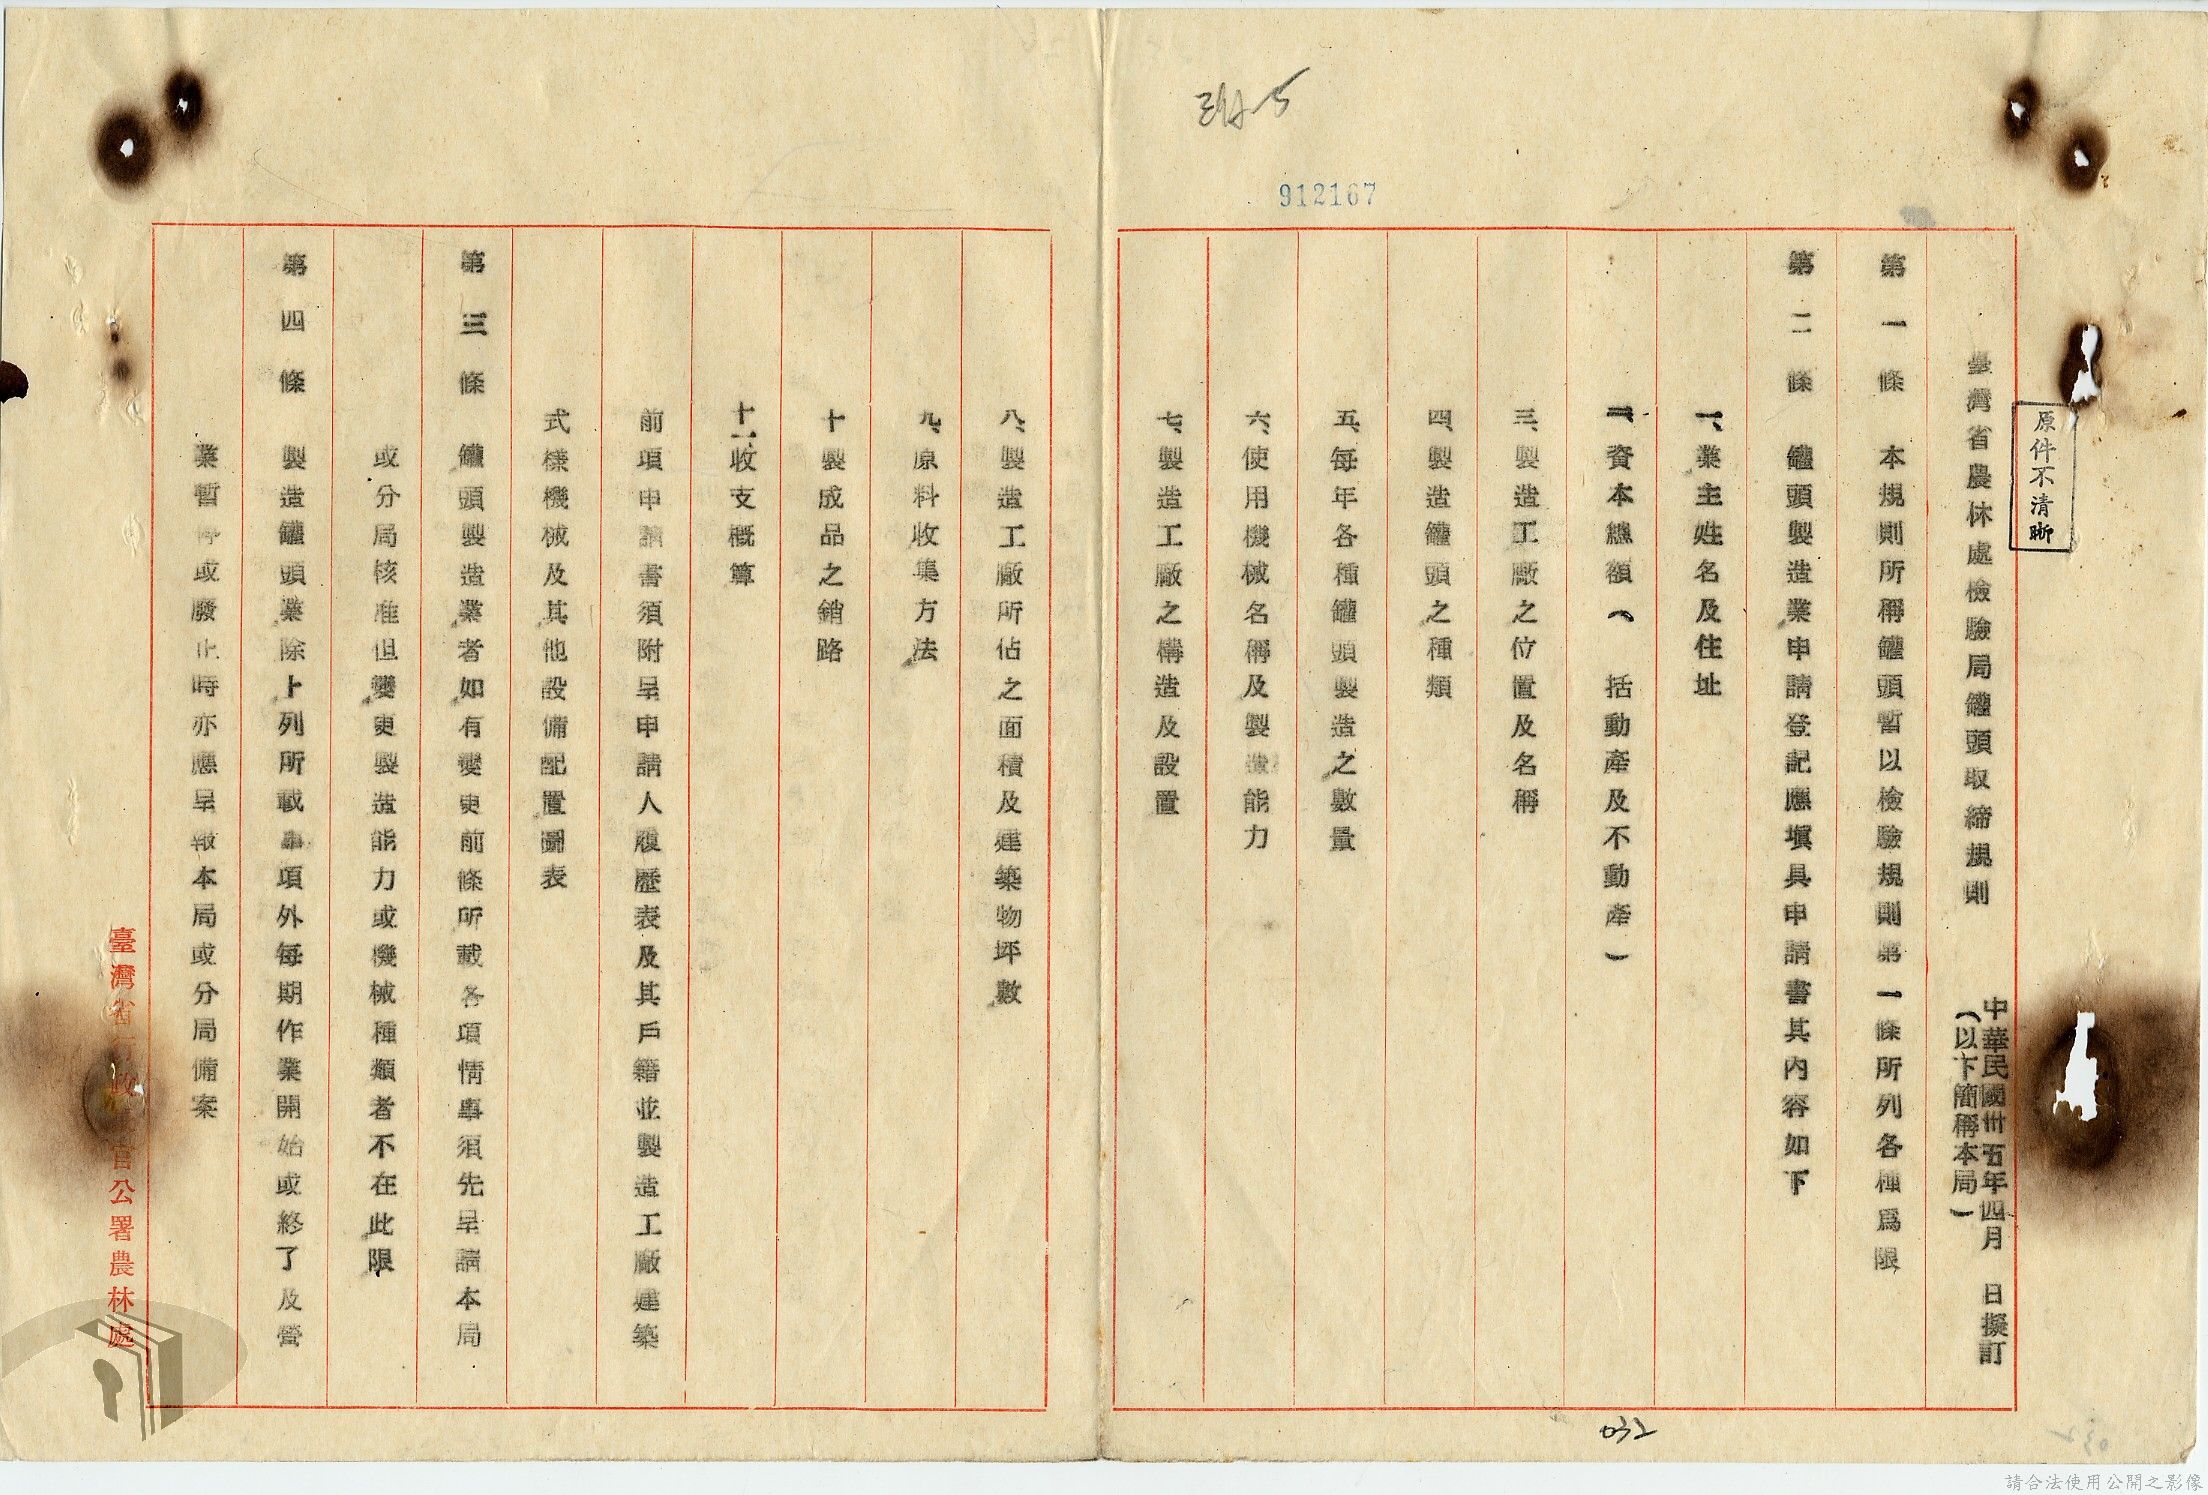 912167
原件不清晰
臺灣省農林處檢驗局罐頭取締規則
中華民國卅五年四月　日擬訂
(以下簡稱本局)
第一條　本規則所稱罐頭暫以檢驗規則第一條所列各種爲限
第二條　罐頭製造業申請登記應塡具申請書其內容如下
一、業主姓名及住址
二、資本總額(　括動產及不動產)
三、製造工廠之位置及名稱
四、製造罐頭之種類
五、每年各種罐頭製造之數量
六、使用機械名稱及製造能力
七、製造工廠之構造及設置
八、製造工廠所佔之面積及建築物坪數
九、原料收集方法
十　製成品之銷路
十一、收支概算
前項申請書須附呈申請人履歷表及其戶籍並製造工廠建築
式樣機械及其他設備配置圖表
第三條　罐頭製造業者如有變更前條所載各項情事須先呈請本局
或分局核准但變更製造能力或機械種類者不在此限
第四條　製造罐頭業除上列所載事項外每期作業開始或終了及營
業暫停或廢止時亦應呈報本局或分局備案
臺灣省 政 官公署農林處
032
請合法使用公開之影像